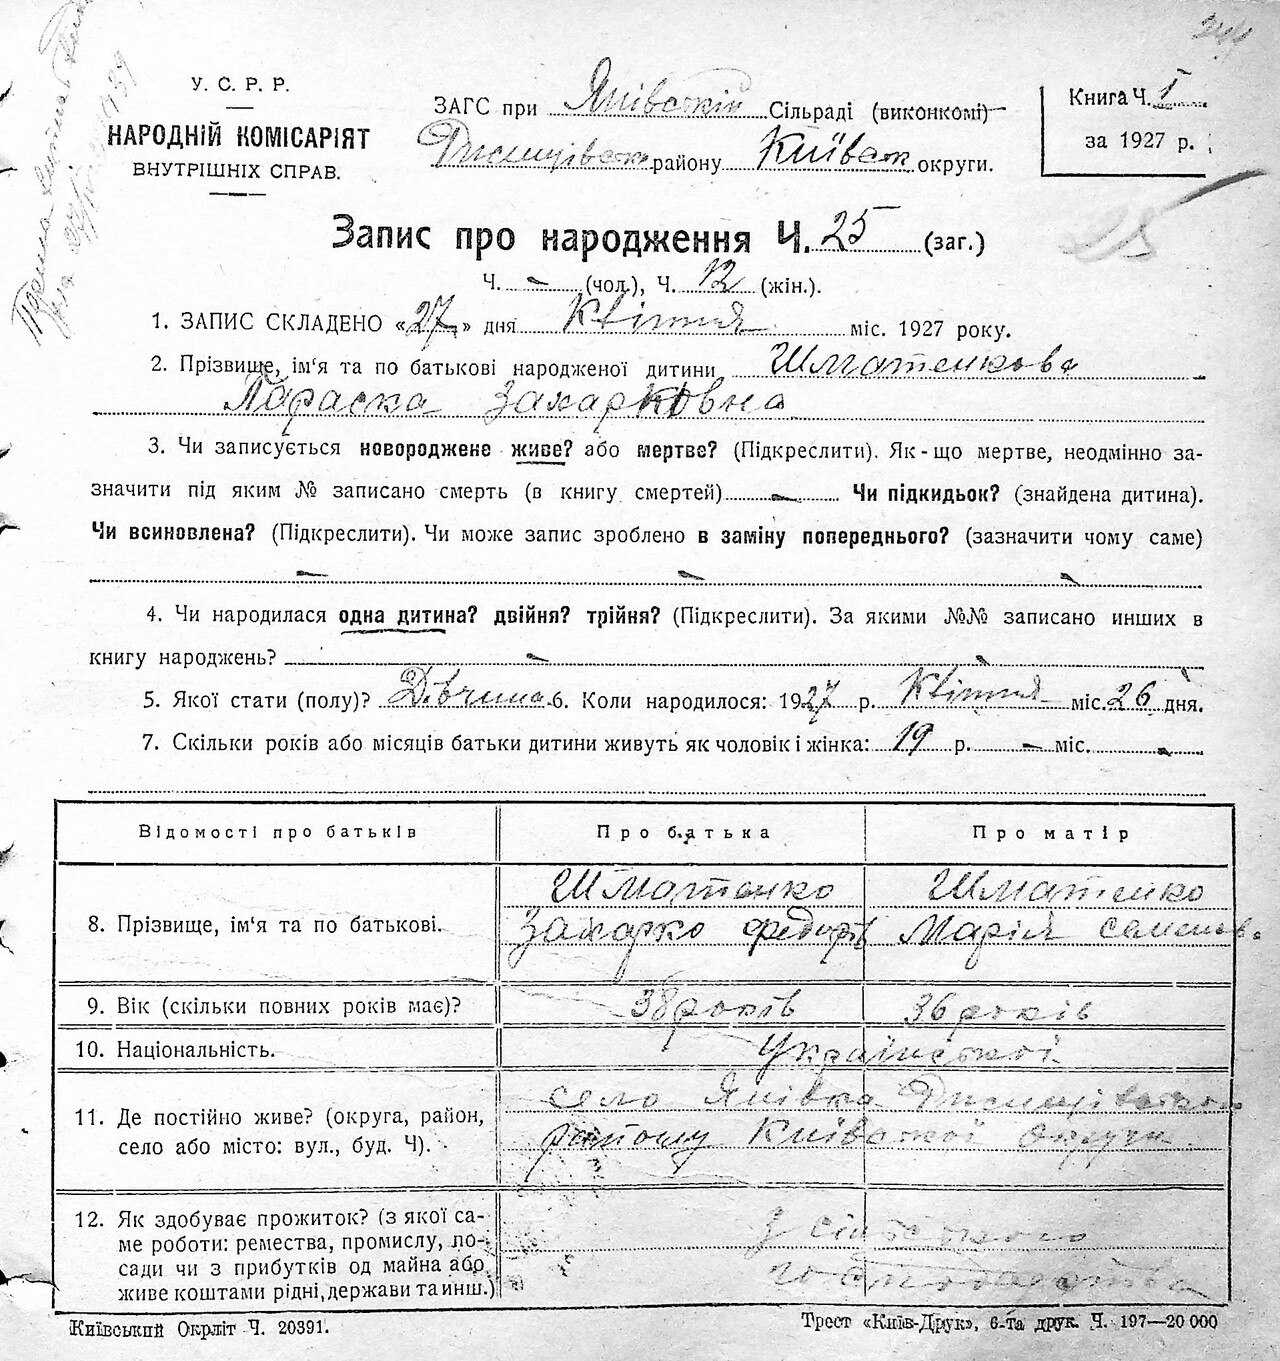 244
У. С. Р. Р.
НАРОДНІЙ КОМІСАРІЯТ
ВНУТРІШНІХ СПРАВ.
ЗАГС при Янівській Сільраді (виконкомі)
району Київськ округи.
Книга Ч. 1
за 1927 р.
Запис про народження Ч. 25 (заг.)
25
Ч. - (чол.), Ч. 12 (жін.).
1. ЗАПИС СКЛАДЕНО «27» дня Квітня міс. 1927 року.
2. Прізвище, ім'я та по батькові народженої дитини Шматенкова
Параска Захарковна
3. Чи записується новороджене живе? або мертве? (Підкреслити). Як-що мертве, неодмінно за-
значити під яким № записано смерть (в книгу смертей) - Чи підкидьок? (знайдена дитина).
Чи всиновлена? (Підкреслити). Чи може запис зроблено в заміну попереднього? (зазначити чому саме)
- - -
4. Чи народилася одна дитина? двійня? трійня? (Підкреслити). За якими №№ записано инших в
книгу народжень? -
5. Якої стати (полу)? Дівчина 6. Коли народилося: 1927 р. Квітня міс. 26 дня.
7. Скільки років або місяців батьки дитини живуть як чоловік і жінка: 19 р. - міс. -
Відомості про батьків Про батька Про матір
8. Прізвище, ім'я та по батькові.
Шматенко Шматенко
Захарко Федорів Марія Семенов.
9. Вік (скільки повних років має)? 38 років 36 років
10. Національність. Української
11. Де постійно живе? (округа, район,
село або місто: вул., буд. Ч).
село Янівка
району Київської округи
12. Як здобуває прожиток? (з якої са-
ме роботи: ремества, промислу, по-
сади чи з прибутків од майна або
живе коштами рідні, держави та инш.)
З сільського
господарства
Київський Окрліт Ч. 20391.
Трест «Київ-Друк», 6-та друк. Ч. 197—20 000